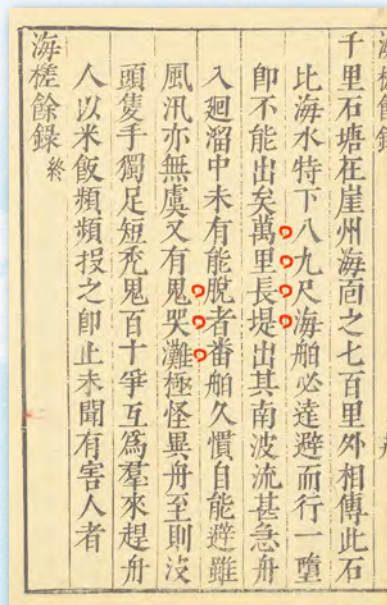 海槎餘錄
千里石塘在崖州海靣之七百里外相傳此石
比海水特下八九尺海舶必逹避而行一墮
卽不能出矣萬里長堤出其南波流甚急舟
入廻溜中未有能脫者番舶久慣自能避雖
風汛亦無虞又有鬼哭灘極怪異舟至則沒
頭隻手獨足短禿鬼百十爭互爲羣來趕舟
人以米飯頻頻投之卽止未聞有害人者
海槎餘錄 終